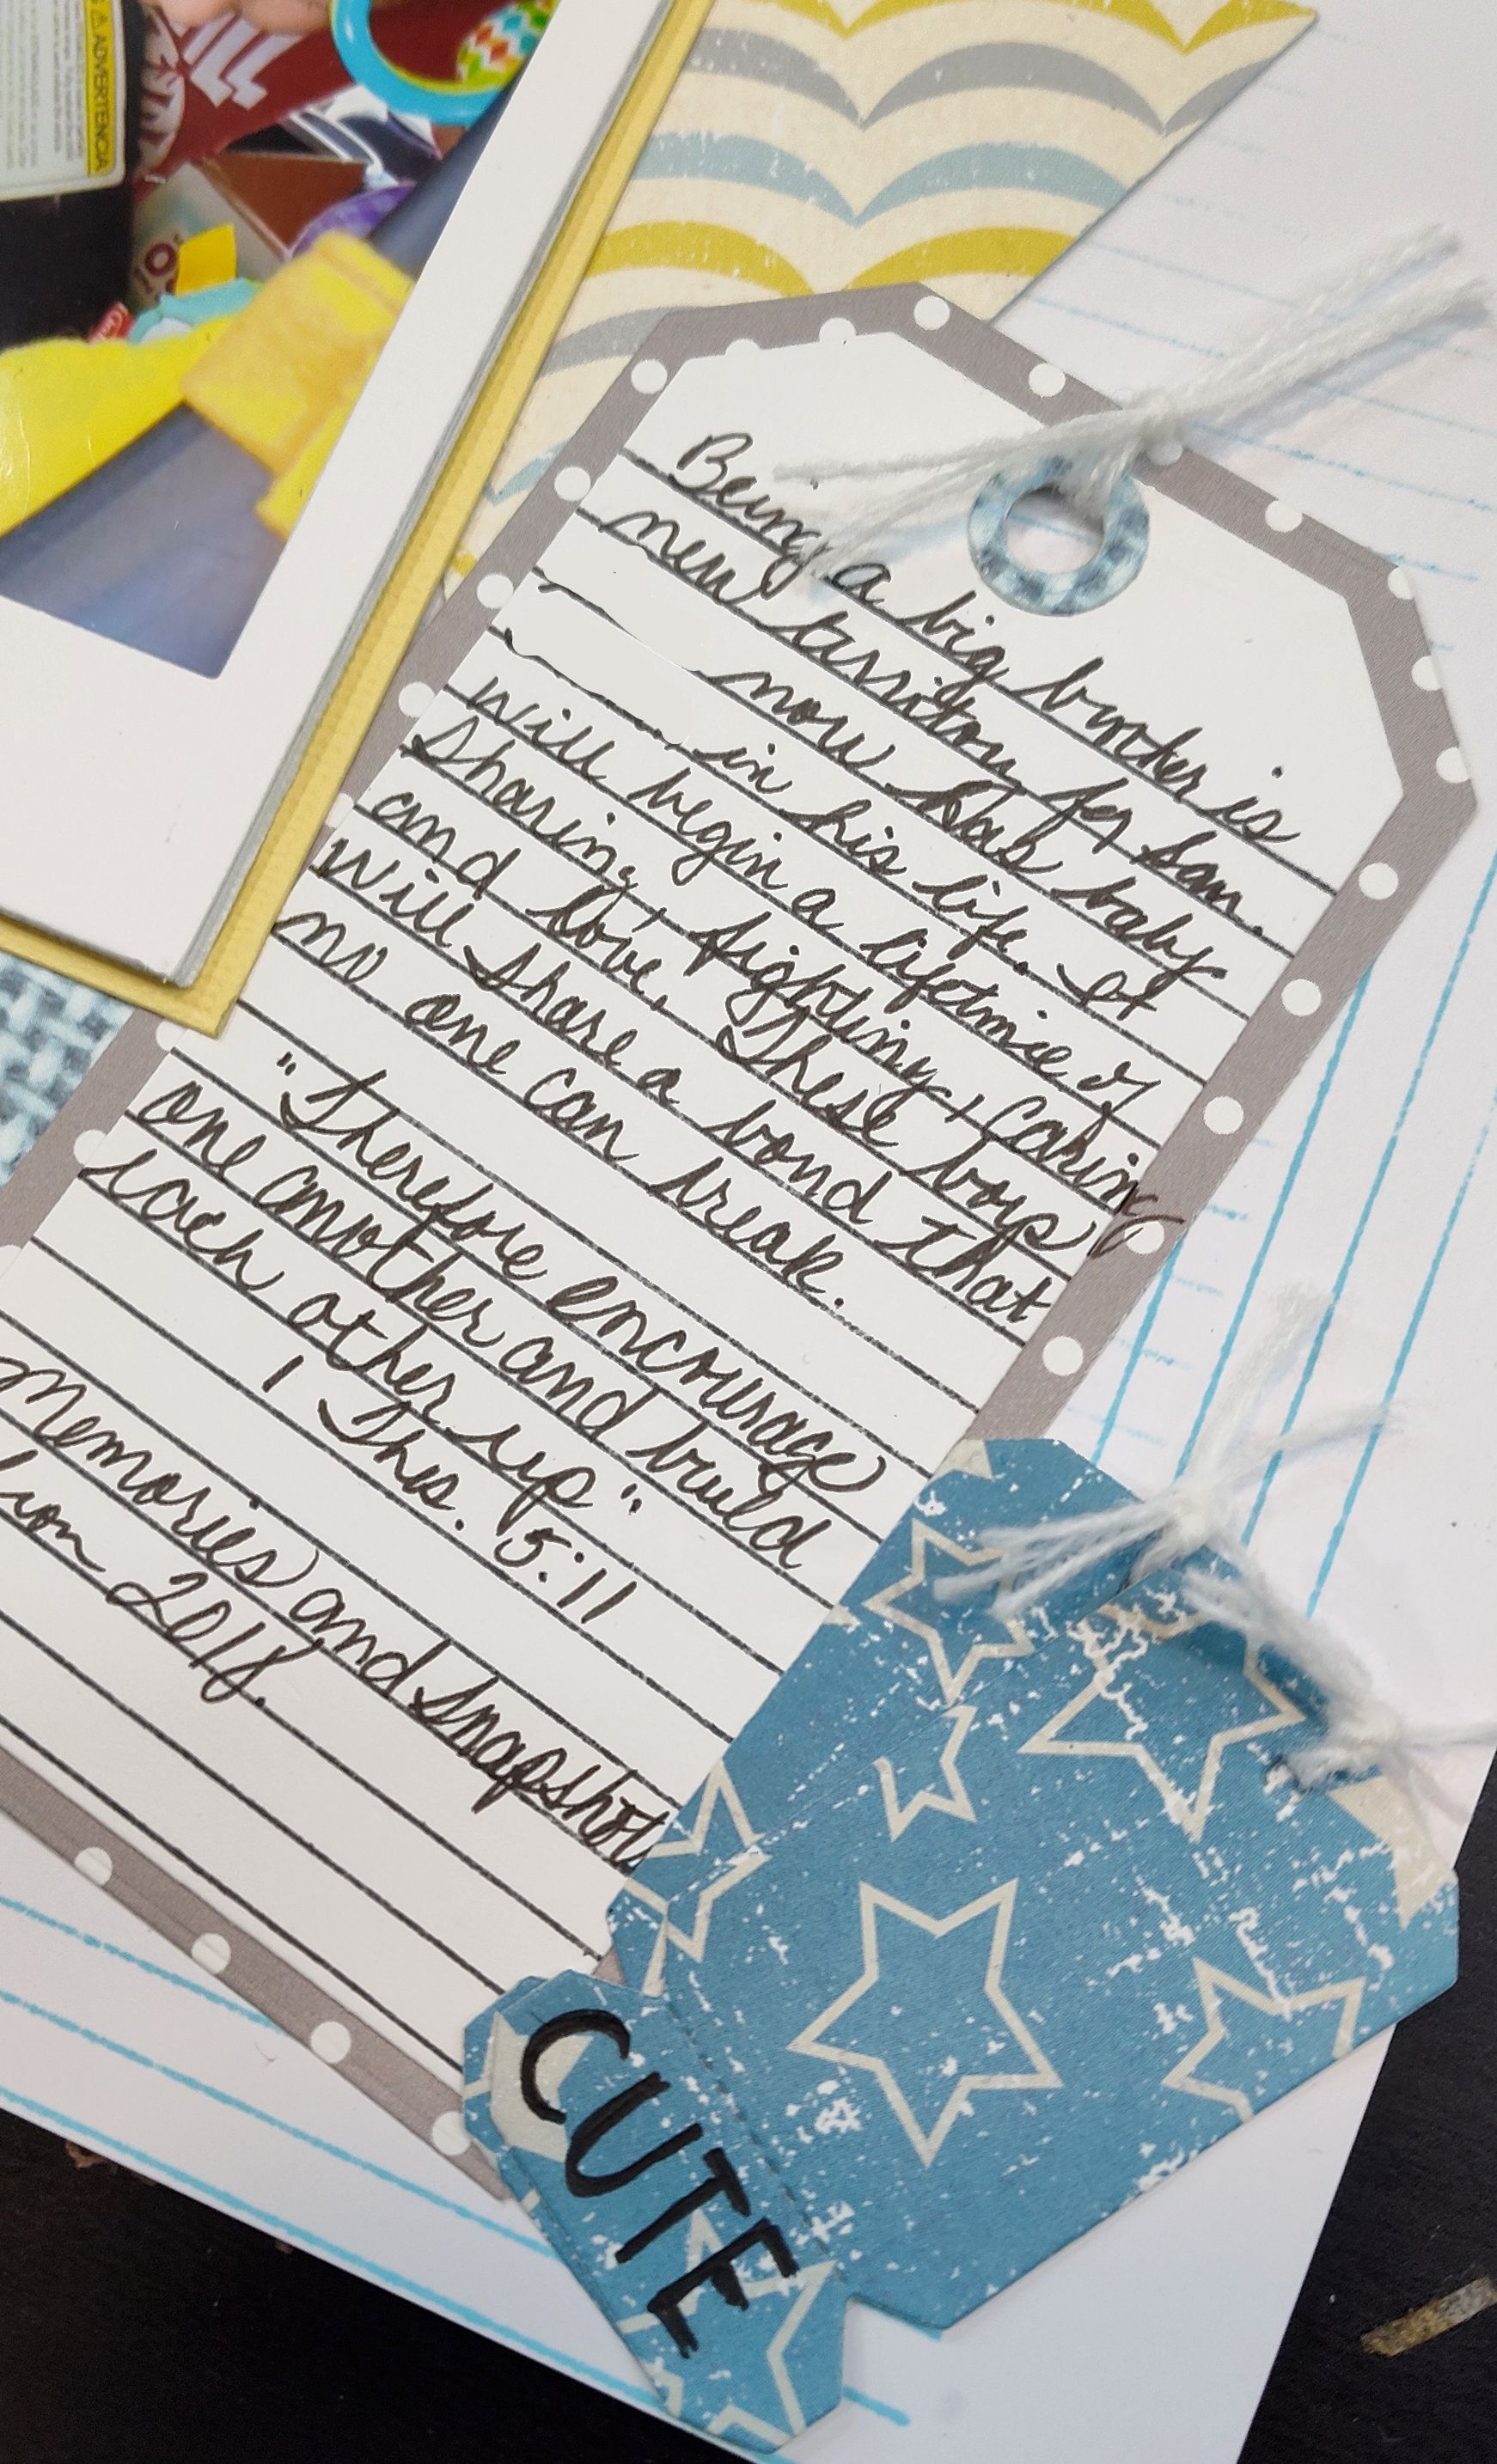 ADVERTENCIA
Being a big brother is
new territory for Sam.
now has baby
in his life. It
will begin a lifetmie of
Sharing, fighting, caring
and love. These boys
will share a bond that
no one can break.
"Therefore encourage
one another and build
each other up".
1 Ths. 5:11
Memories and Snapshots
2018.
CUTE